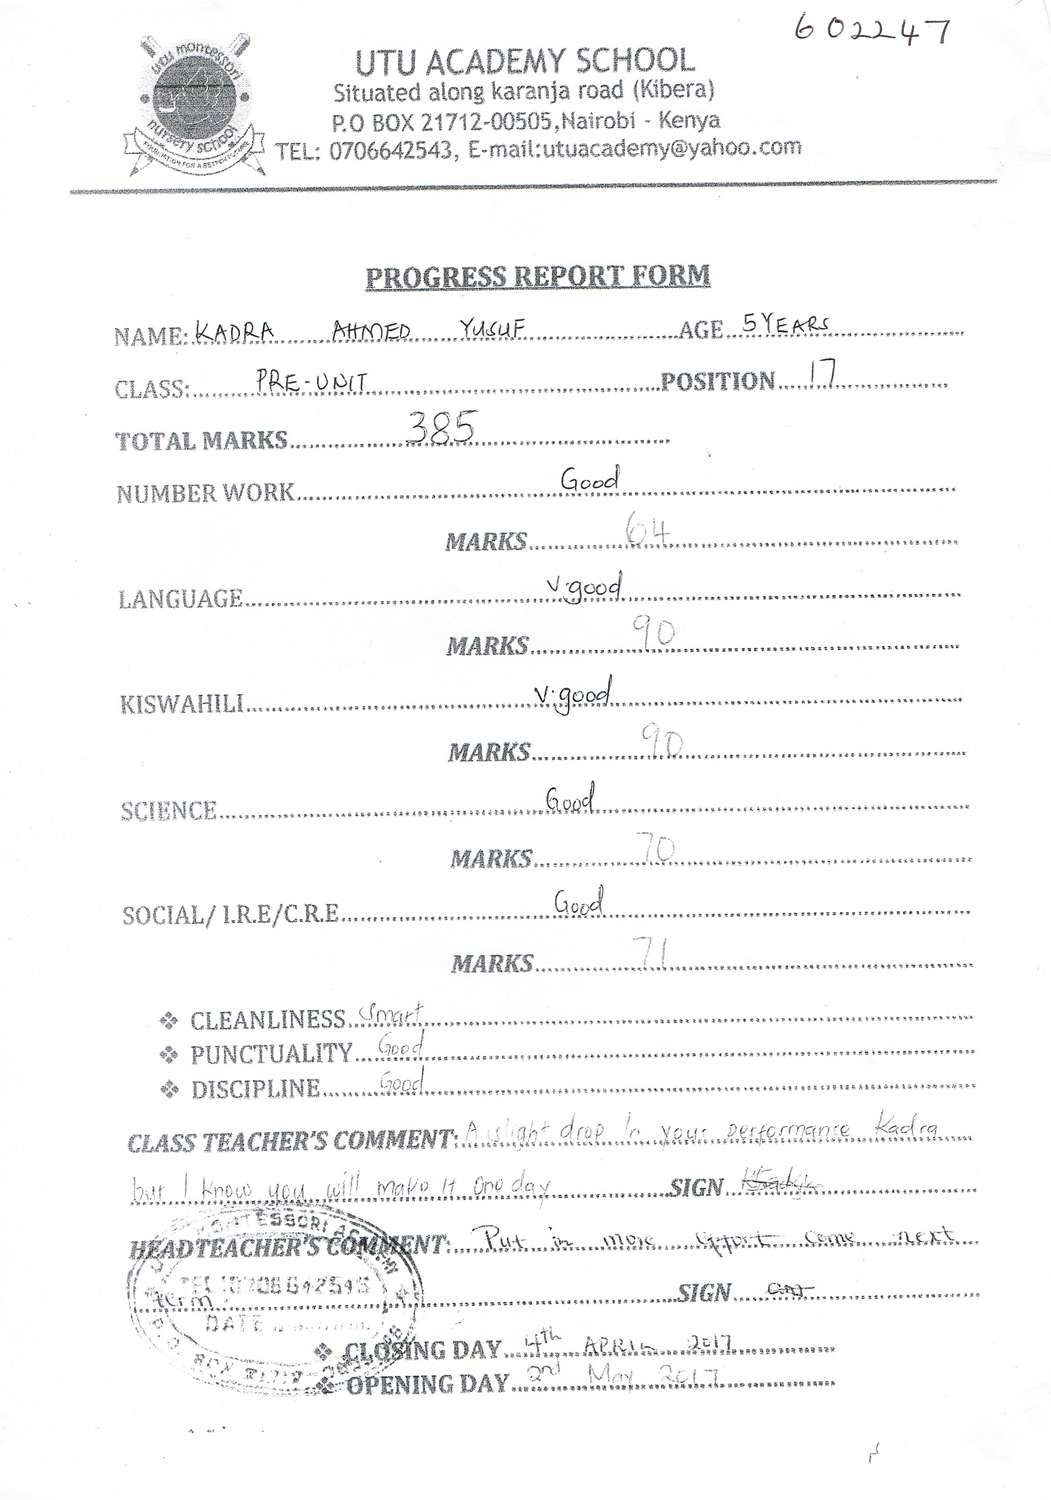 602247
utu montessori
nursery school
FOUNDATION FOR A BETTER FUTURE
UTU ACADEMY SCHOOL
Situated along karanja road (Kibera)
P.O BOX 21712-00505,Nairobi - Kenya
TEL: 0706642543, E-mail:utuacademy@yahoo.com
PROGRESS REPORT FORM
NAME: KADRA AHMED YUSUF AGE 5 YEARS
CLASS: PRE-UNIT POSITION 17
TOTAL MARKS 385
NUMBER WORK Good
MARKS 64
LANGUAGE V.good
MARKS 90
KISWAHILI V.good
MARKS 90
SCIENCE Good
MARKS 70
SOCIAL/ I.R.E/C.R.E Good
MARKS 71
❖ CLEANLINESS Smart
❖ PUNCTUALITY Good
❖ DISCIPLINE Good
CLASS TEACHER'S COMMENT: A slight drop in your performance Kadra
but I know you will make it one day SIGN
HEADTEACHER'S COMMENT: Put in more effort come next
term SIGN
❖ CLOSING DAY 4th APRIL 2017
❖ OPENING DAY 2nd May 2017
MONTESSORI ACADEMY
TEL: 0706642543
DATE
P.O. BOX 21712-